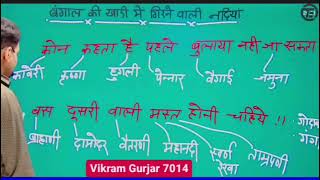 बंगाल की खाडी में गिरने वाली नदियां
कोन कहता है पहले बुलाया नहीं जा सकता
कावेरी कृष्णा हुगली पेन्नार वेगाई जमुना
बस दुसरी वाली मस्त होनी चहिये !!
ब्राहाणी दामोदर वैतरणी महानदी स्वर्ण रेखा ताम्रपर्णी
गोदा
गंग
Vikram Gurjar 7014